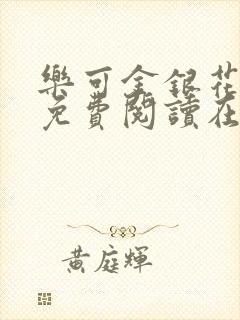 樂可金銀花
免費閱讀在
黃庭輝